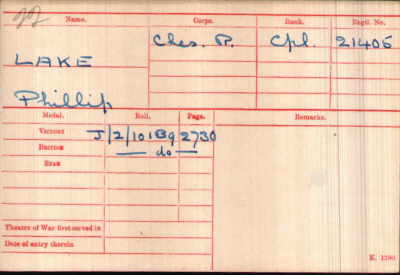 Name. Corps. Rank. Regtl. No.
LAKE Ches. R. Cpl. 21405
Phillip
Medal. Roll. Page. Remarks.
VICTORY J/2/101B9 2730
BRITISH — do —
STAR
Theatre of War first served in
Date of entry therein
K. 1380